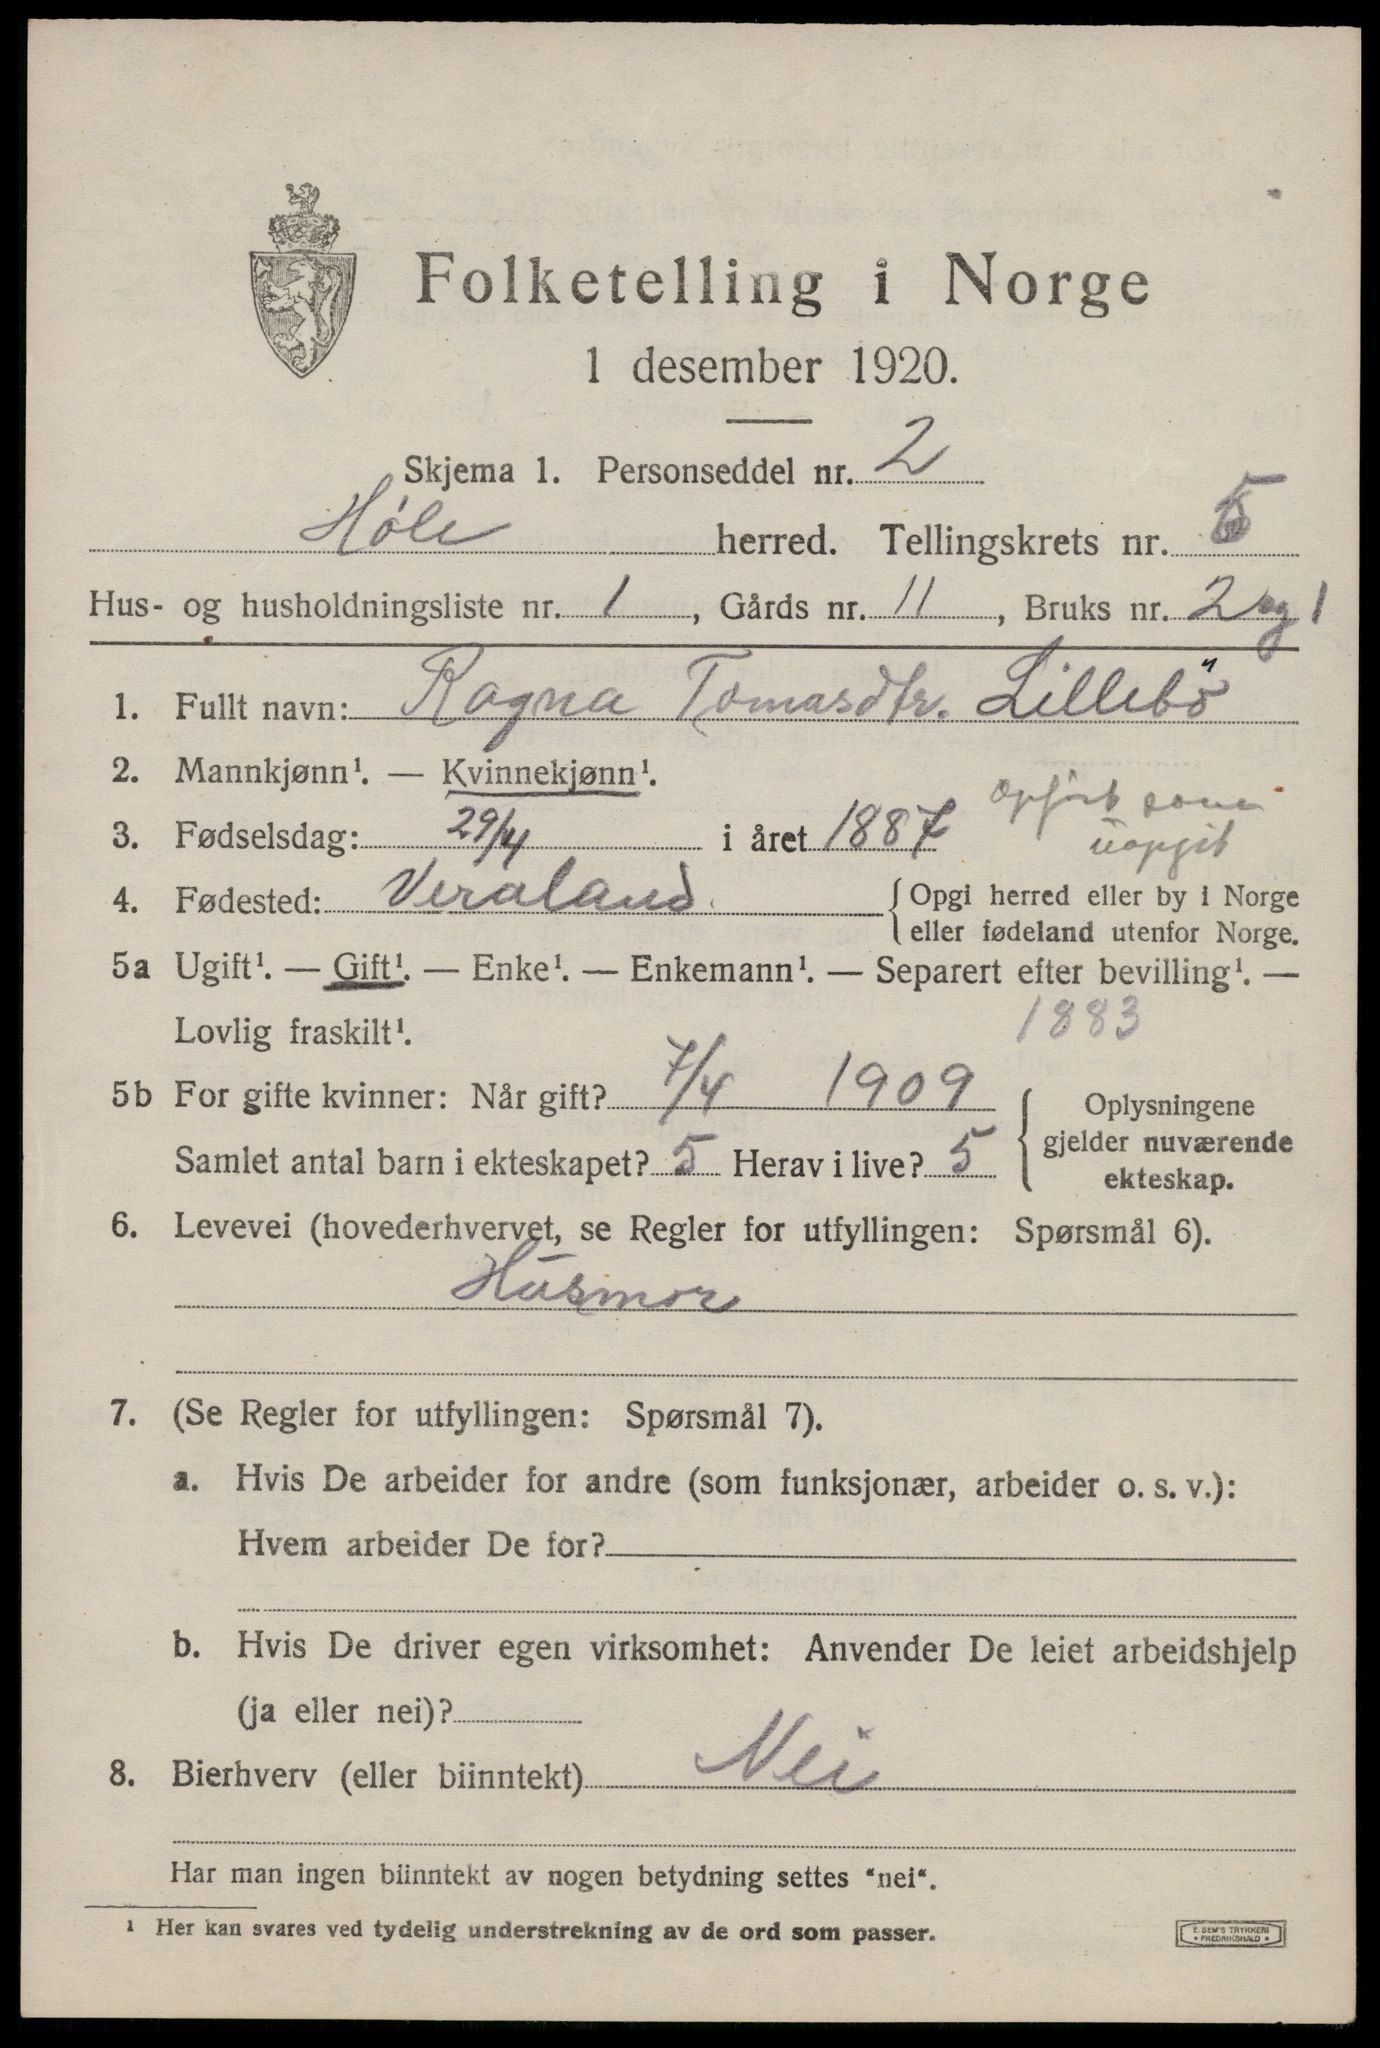 Folketelling i Norge
1 desember 1920.
Skjema 1. Personseddel nr. 2
Høle herred. Tellingskrets nr. 5
Hus- og husholdningsliste nr. 1, Gårds nr. 11, Bruks nr. 2 og 1
1. Fullt navn: Ragna Tomasdtr. Lillebö
2. Mannkjønn¹. — Kvinnekjønn¹.
opført som
3. Fødselsdag: 29/4 i året 1887
uopgit
4. Fødested: Veraland { Opgi herred eller by i Norge
eller fødeland utenfor Norge.
5a Ugift¹. — Gift¹. — Enke¹. — Enkemann¹. — Separert efter bevilling¹. —
Lovlig fraskilt¹. 1883
5b For gifte kvinner: Når gift? 7/4 1909 { Oplysningene
gjelder nuværende
ekteskap.
Samlet antal barn i ekteskapet? 5 Herav i live? 5
6. Levevei (hovederhvervet, se Regler for utfyllingen: Spørsmål 6).
Husmor
7. (Se Regler for utfyllingen: Spørsmål 7).
a. Hvis De arbeider for andre (som funksjonær, arbeider o. s. v.):
Hvem arbeider De for?
b. Hvis De driver egen virksomhet: Anvender De leiet arbeidshjelp
(ja eller nei)?
8. Bierhverv (eller biinntekt) Nei
Har man ingen biinntekt av nogen betydning settes “nei“.
¹ Her kan svares ved tydelig understrekning av de ord som passer.
E. SEM'S TRYKKERI
* FREDRIKSHALD *